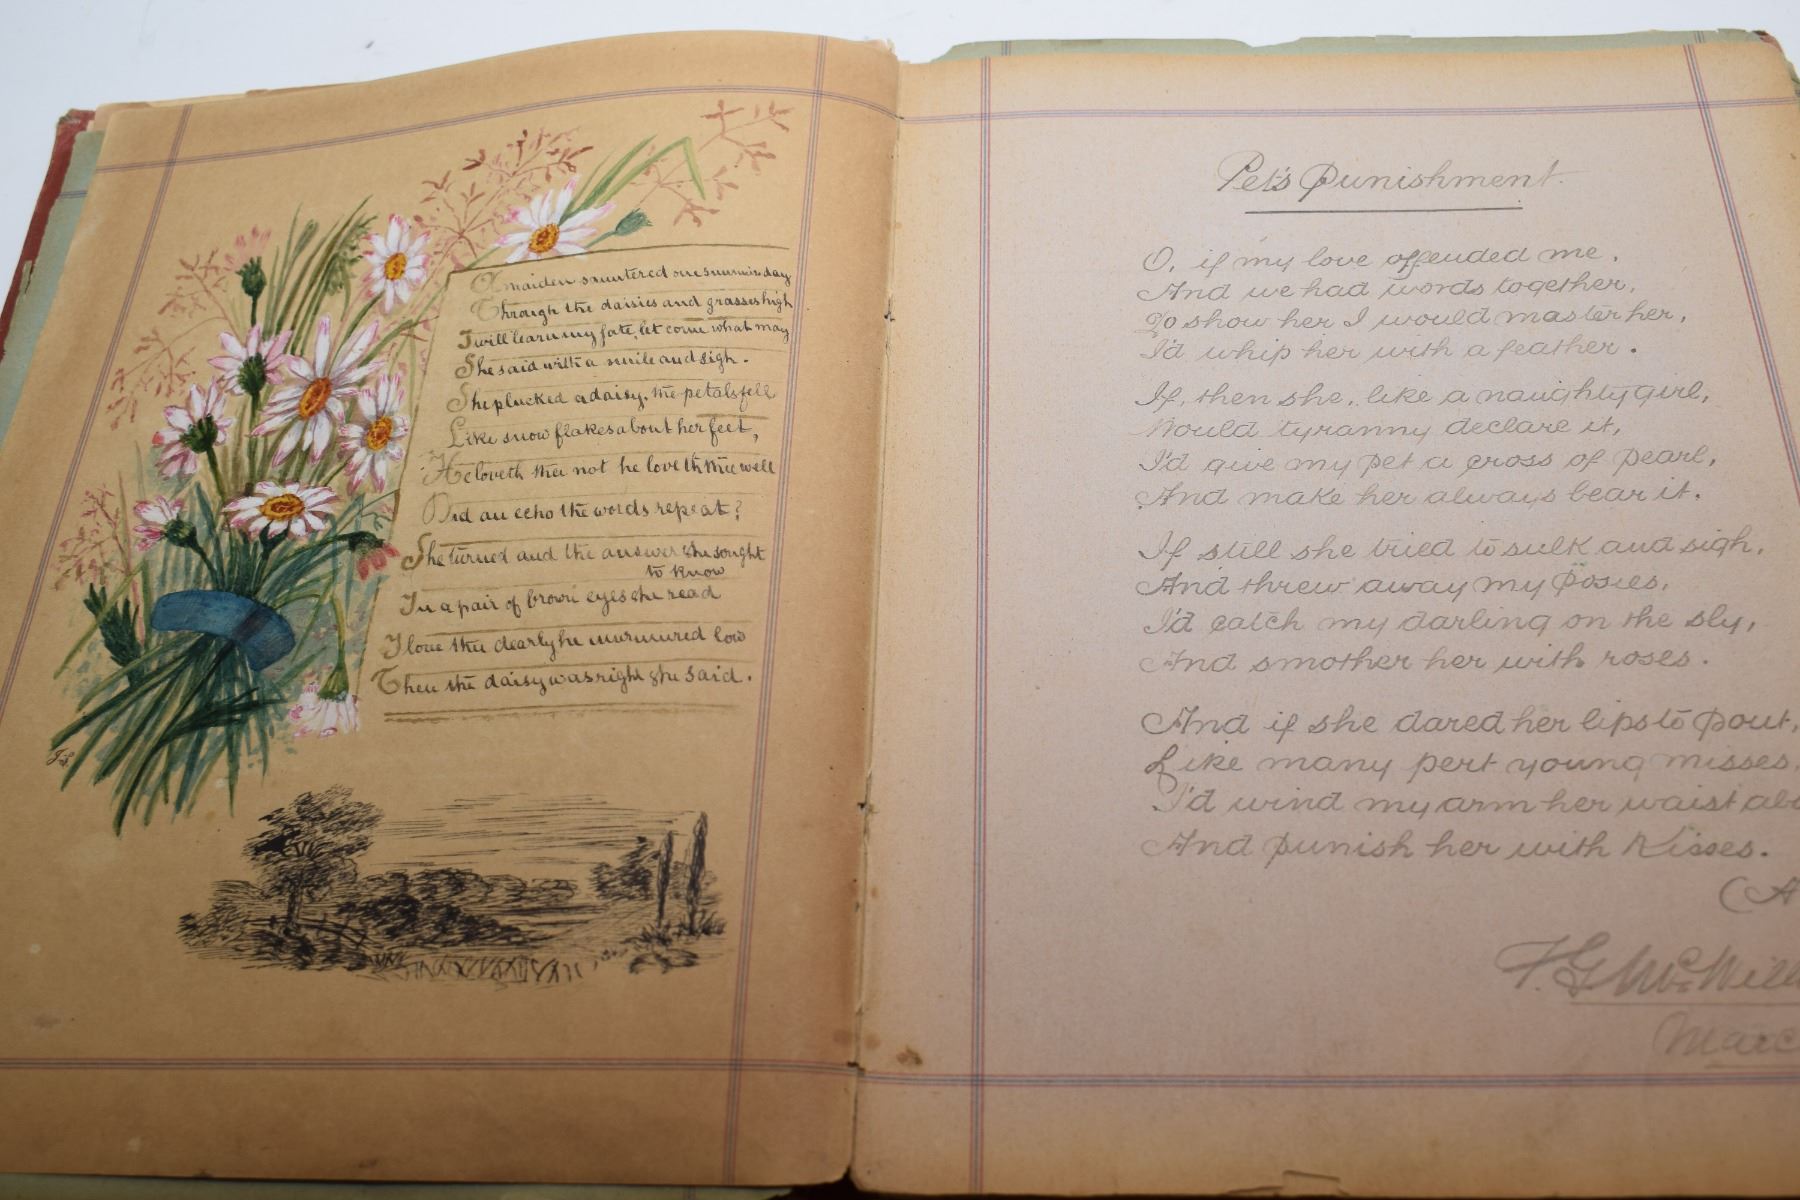 A maiden sauntered one summer day
Through the daisies and grasses high
I will learn my fate, let come what may
She said with a smile and sigh.
She plucked a daisy, the petals fell
Like snow flakes about her feet,
He loveth thee not he loveth thee well
Did an echo the words repeat?
She turned and the answer she sought
to know
In a pair of brown eyes she read
I love thee dearly he murmured low
Then the daisy was right she said.
Pet's Punishment.
O, if my love offended me,
And we had words together,
To show her I would master her,
I'd whip her with a feather.
If, then she, like a naughty girl,
Would tyranny declare it,
I'd give my pet a cross of pearl,
And make her always bear it.
If still she tried to sulk and sigh,
And threw away my posies,
I'd catch my darling on the sly,
And smother her with roses.
And if she dared her lips to pout,
Like many pert young misses,
I'd wind my arm her waist abo
And punish her with Kisses.
(A
F. G. McWill
Marc